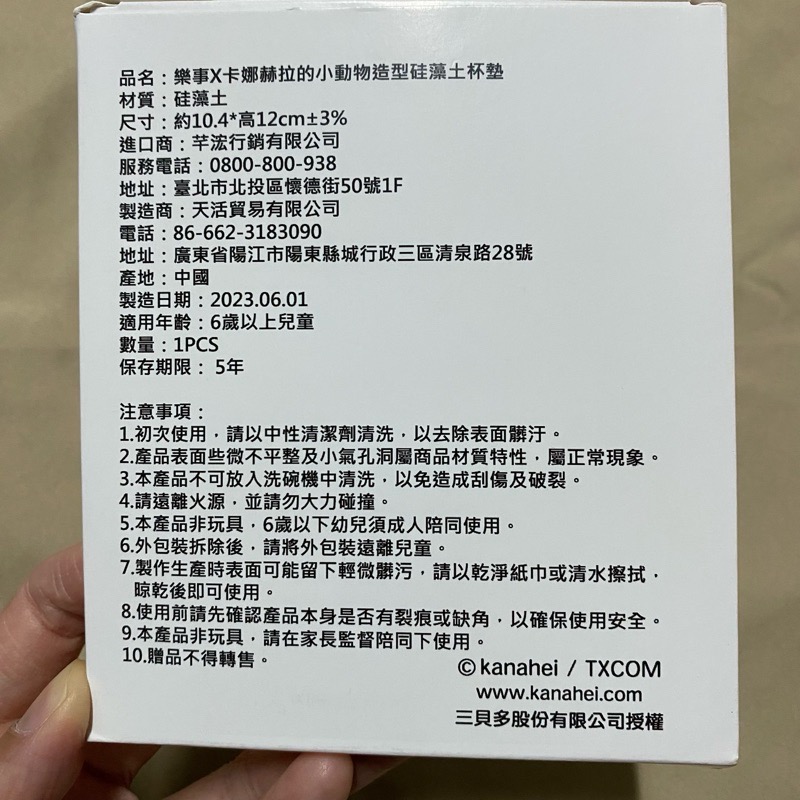 品名：樂事X卡娜赫拉的小動物造型硅藻土杯墊
材質：硅藻土
尺寸：約10.4*高12cm±3%
進口商：芊浤行銷有限公司
服務電話：0800-800-938
地址：臺北市北投區懷德街50號1F
製造商：天活貿易有限公司
電話：86-662-3183090
地址：廣東省陽江市陽東縣城行政三區清泉路28號
產地：中國
製造日期：2023.06.01
適用年齡：6歲以上兒童
數量：1PCS
保存期限： 5年
注意事項：
1.初次使用，請以中性清潔劑清洗，以去除表面髒汙。
2.產品表面些微不平整及小氣孔洞屬商品材質特性，屬正常現象。
3.本產品不可放入洗碗機中清洗，以免造成刮傷及破裂。
4.請遠離火源，並請勿大力碰撞。
5.本產品非玩具，6歲以下幼兒須成人陪同使用。
6.外包裝拆除後，請將外包裝遠離兒童。
7.製作生產時表面可能留下輕微髒污，請以乾淨紙巾或清水擦拭，
晾乾後即可使用。
8.使用前請先確認產品本身是否有裂痕或缺角，以確保使用安全。
9.本產品非玩具，請在家長監督陪同下使用。
10.贈品不得轉售。
©kanahei / TXCOM
www.kanahei.com
三貝多股份有限公司授權